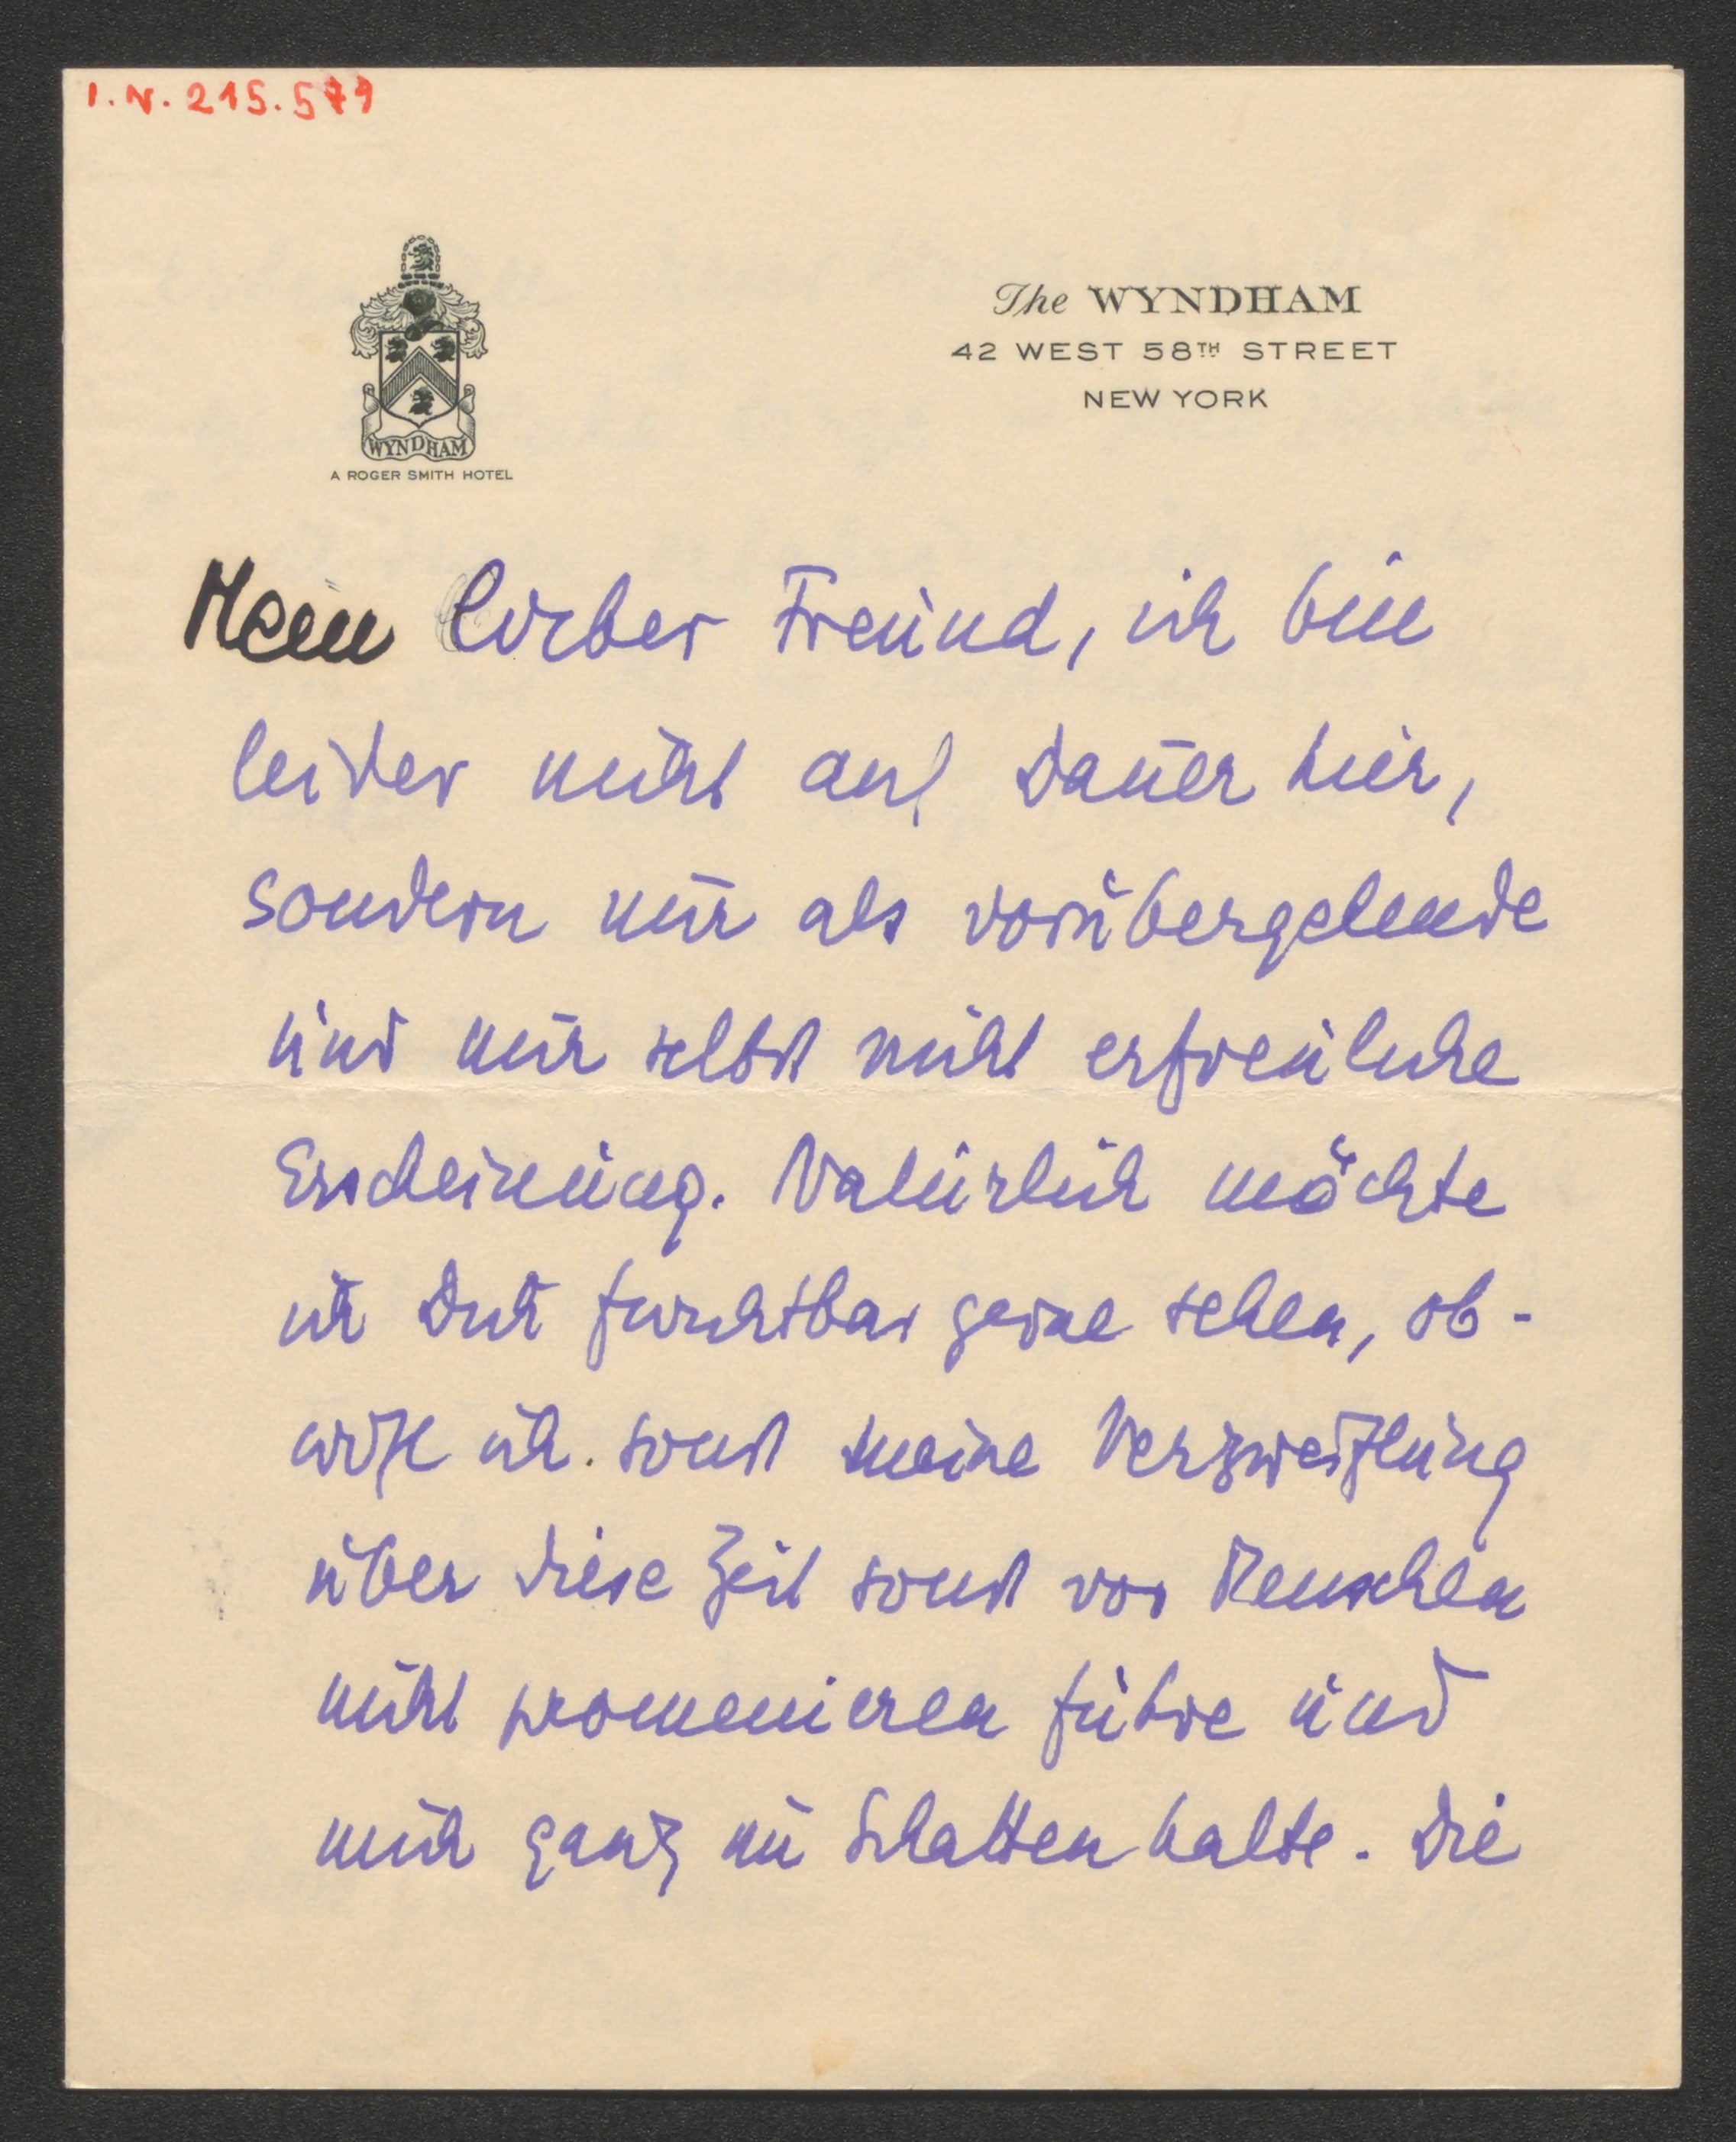 I.N. 215.579
The WYNDHAM
42 WEST 58TH STREET
NEW YORK
WYNDHAM
A ROGER SMITH HOTEL
Mein lieber Freund, ich bin
leider nicht auf Dauer hier,
sondern nur als vorübergehende
und mir selbst nicht erfreuliche
Erscheinung. Natürlich möchte
ich Dich furchtbar gerne sehen, ob-
wohl ich sonst meine Verzweiflung
über diese Zeit sonst vor Menschen
nicht promenieren führe und
mich ganz im Schatten halte. Die